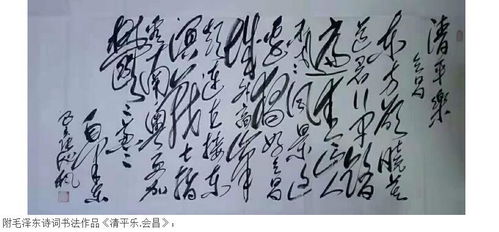 清平樂
会昌
东方欲晓莫
道君行早踏
遍青山人
未老风景这
边独好会昌
城外高峰
颠连直接东
溟战士指
看南粤更加
郁郁葱葱
毛泽东
附毛泽东诗词书法作品《清平乐.会昌》：